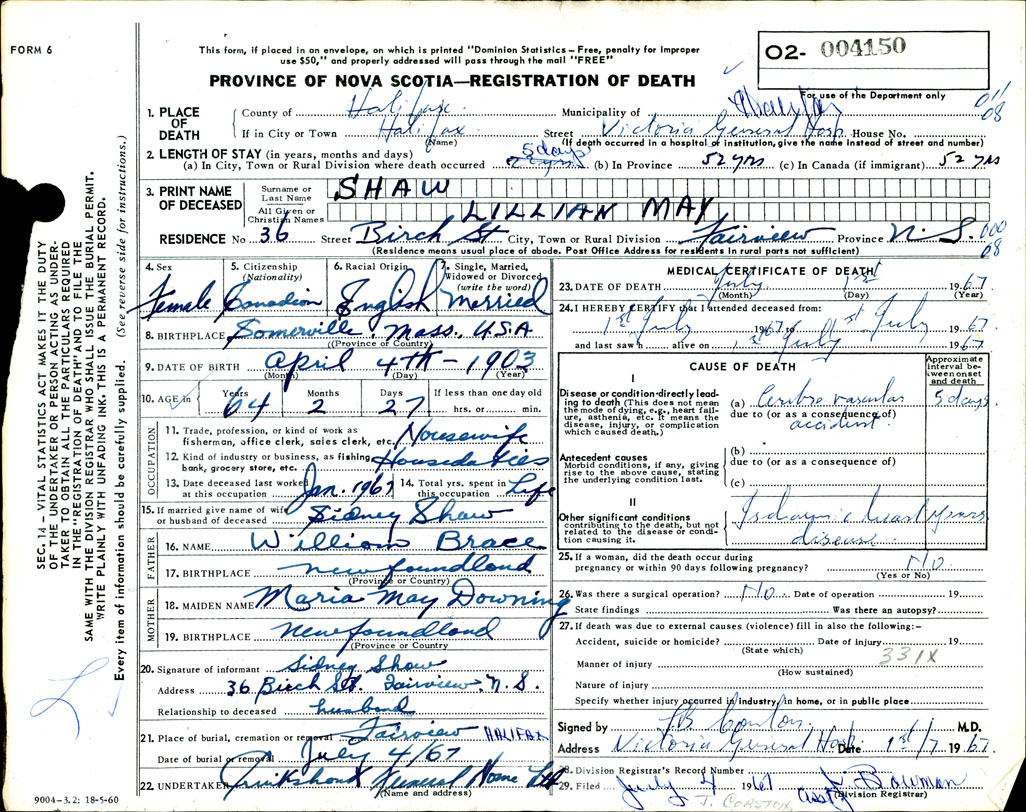 FORM 6
This form, if placed in an envelope, on which is printed "Dominion Statistics – Free, penalty for improper
use $50," and properly addressed will pass through the mail "FREE"
O2- 004150
For use of the Department only
PROVINCE OF NOVA SCOTIA—REGISTRATION OF DEATH
011
08
1. PLACE OF DEATH
County of Halifax Municipality of Halifax
If in City or Town Halifax Street Victoria General Hosp House No.
(Name) (If death occurred in a hospital or institution, give the name instead of street and number)
2. LENGTH OF STAY (in years, months and days)
(a) In City, Town or Rural Division where death occurred 5 days (b) In Province 52 yrs (c) In Canada (if immigrant) 52 yrs
3. PRINT NAME OF DECEASED
Surname or Last Name SHAW
All Given or Christian Names LILLIAN MAY
RESIDENCE No 36 Street Birch St City, Town or Rural Division Fairview Province N.S. 000
08
(Residence means usual place of abode. Post Office Address for residents in rural parts not sufficient)
4. Sex Female
5. Citizenship (Nationality) Canadian
6. Racial Origin English
7. Single, Married, Widowed or Divorced (write the word) Married
8. BIRTHPLACE Somerville, Mass. U.S.A
(Province or Country)
9. DATE OF BIRTH April 4th - 1903
(Month) (Day) (Year)
10. AGE in Years 64 Months 2 Days 27 If less than one day old hrs. or min.
OCCUPATION
11. Trade, profession, or kind of work as fisherman, office clerk, sales clerk, etc. Housewife
12. Kind of industry or business, as fishing, bank, grocery store, etc. Houseduties
13. Date deceased last worked at this occupation Jan. 1967
14. Total yrs. spent in this occupation Life
15. If married give name of wife or husband of deceased Sidney Shaw
FATHER
16. NAME William Brace
17. BIRTHPLACE Newfoundland
(Province or Country)
MOTHER
18. MAIDEN NAME Maria May Downing
19. BIRTHPLACE Newfoundland
(Province or Country
20. Signature of informant Sidney Shaw
Address 36 Birch St. Fairview. N.S.
Relationship to deceased husband
21. Place of burial, cremation or removal Fairview HALIFAX
Date of burial or removal July 4/67
22. UNDERTAKER Cruikshank Funeral Home Ltd
(Name and address)
MEDICAL CERTIFICATE OF DEATH
23. DATE OF DEATH July 1st 1967
(Month) (Day) (Year)
24. I HEREBY CERTIFY that I attended deceased from:
1st July 1967 to 1st July 1967
and last saw h alive on 1st July 1967
CAUSE OF DEATH
Approximate interval between onset and death
I
Disease or condition directly leading to death (This does not mean the mode of dying, e.g., heart failure, asthenia, etc. It means the disease, injury, or complication which caused death.)
(a) Cerebro vascular 5 days
due to (or as a consequence of)
accident.
Antecedent causes
Morbid conditions, if any, giving rise to the above cause, stating the underlying condition last.
(b)
due to (or as a consequence of)
(c)
II
Other significant conditions
contributing to the death, but not related to the disease or condition causing it.
Ischaemic heart years
disease
25. If a woman, did the death occur during
pregnancy or within 90 days following pregnancy? No
(Yes or No)
26. Was there a surgical operation? No Date of operation 19
State findings Was there an autopsy?
27. If death was due to external causes (violence) fill in also the following:–
Accident, suicide or homicide? Date of injury 19
(State which) 331X
Manner of injury
(How sustained)
Nature of injury
Specify whether injury occurred in industry, in home, or in public place
Signed by M.D.
Address Victoria General Hosp. Date 1st/7 1967
28. Division Registrar's Record Number
29. Filed July 4 1967 Bowman
(Division Registrar)
SEC. 14 – VITAL STATISTICS ACT MAKES IT THE DUTY
OF THE UNDERTAKER OR PERSON ACTING AS UNDER-
TAKER TO OBTAIN ALL THE PARTICULARS REQUIRED
IN THE "REGISTRATION OF DEATH" AND TO FILE THE
SAME WITH THE DIVISION REGISTRAR WHO SHALL ISSUE THE BURIAL PERMIT.
WRITE PLAINLY WITH UNFADING INK. THIS IS A PERMANENT RECORD.
Every item of information should be carefully supplied. (See reverse side for instructions.)
9004–3.2: 18-5-60